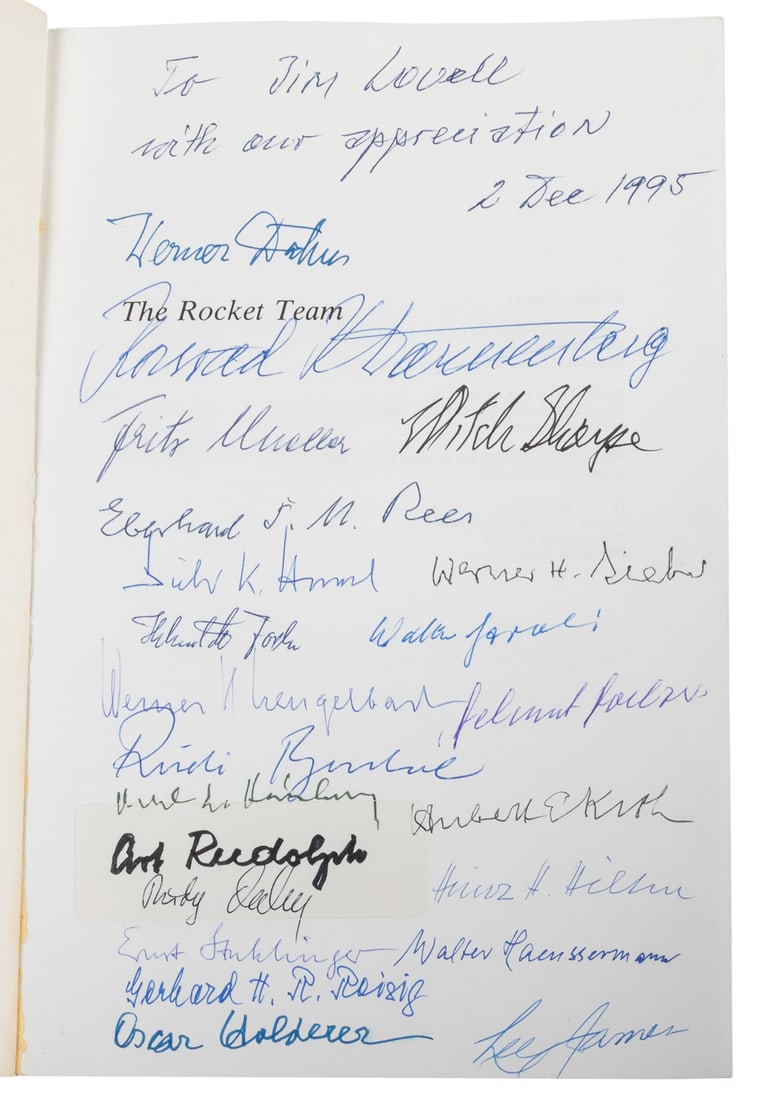 To Jim Lovell
with our appreciation
2 Dec 1995
Werner Dahm
The Rocket Team
Konrad Dannenberg
Fritz Mueller Mitch Sharpe
Eberhard F. M. Rees
K. Werner H.
Helmut Walter Jacobi
Werner Helmut
Rudi
Art Rudolph Hubert E Kroh
Heinz H. Hilten
Ernst Stuhlinger Walter Haeussermann
Gerhard H. R. Reisig
Oscar Holderer Lee James